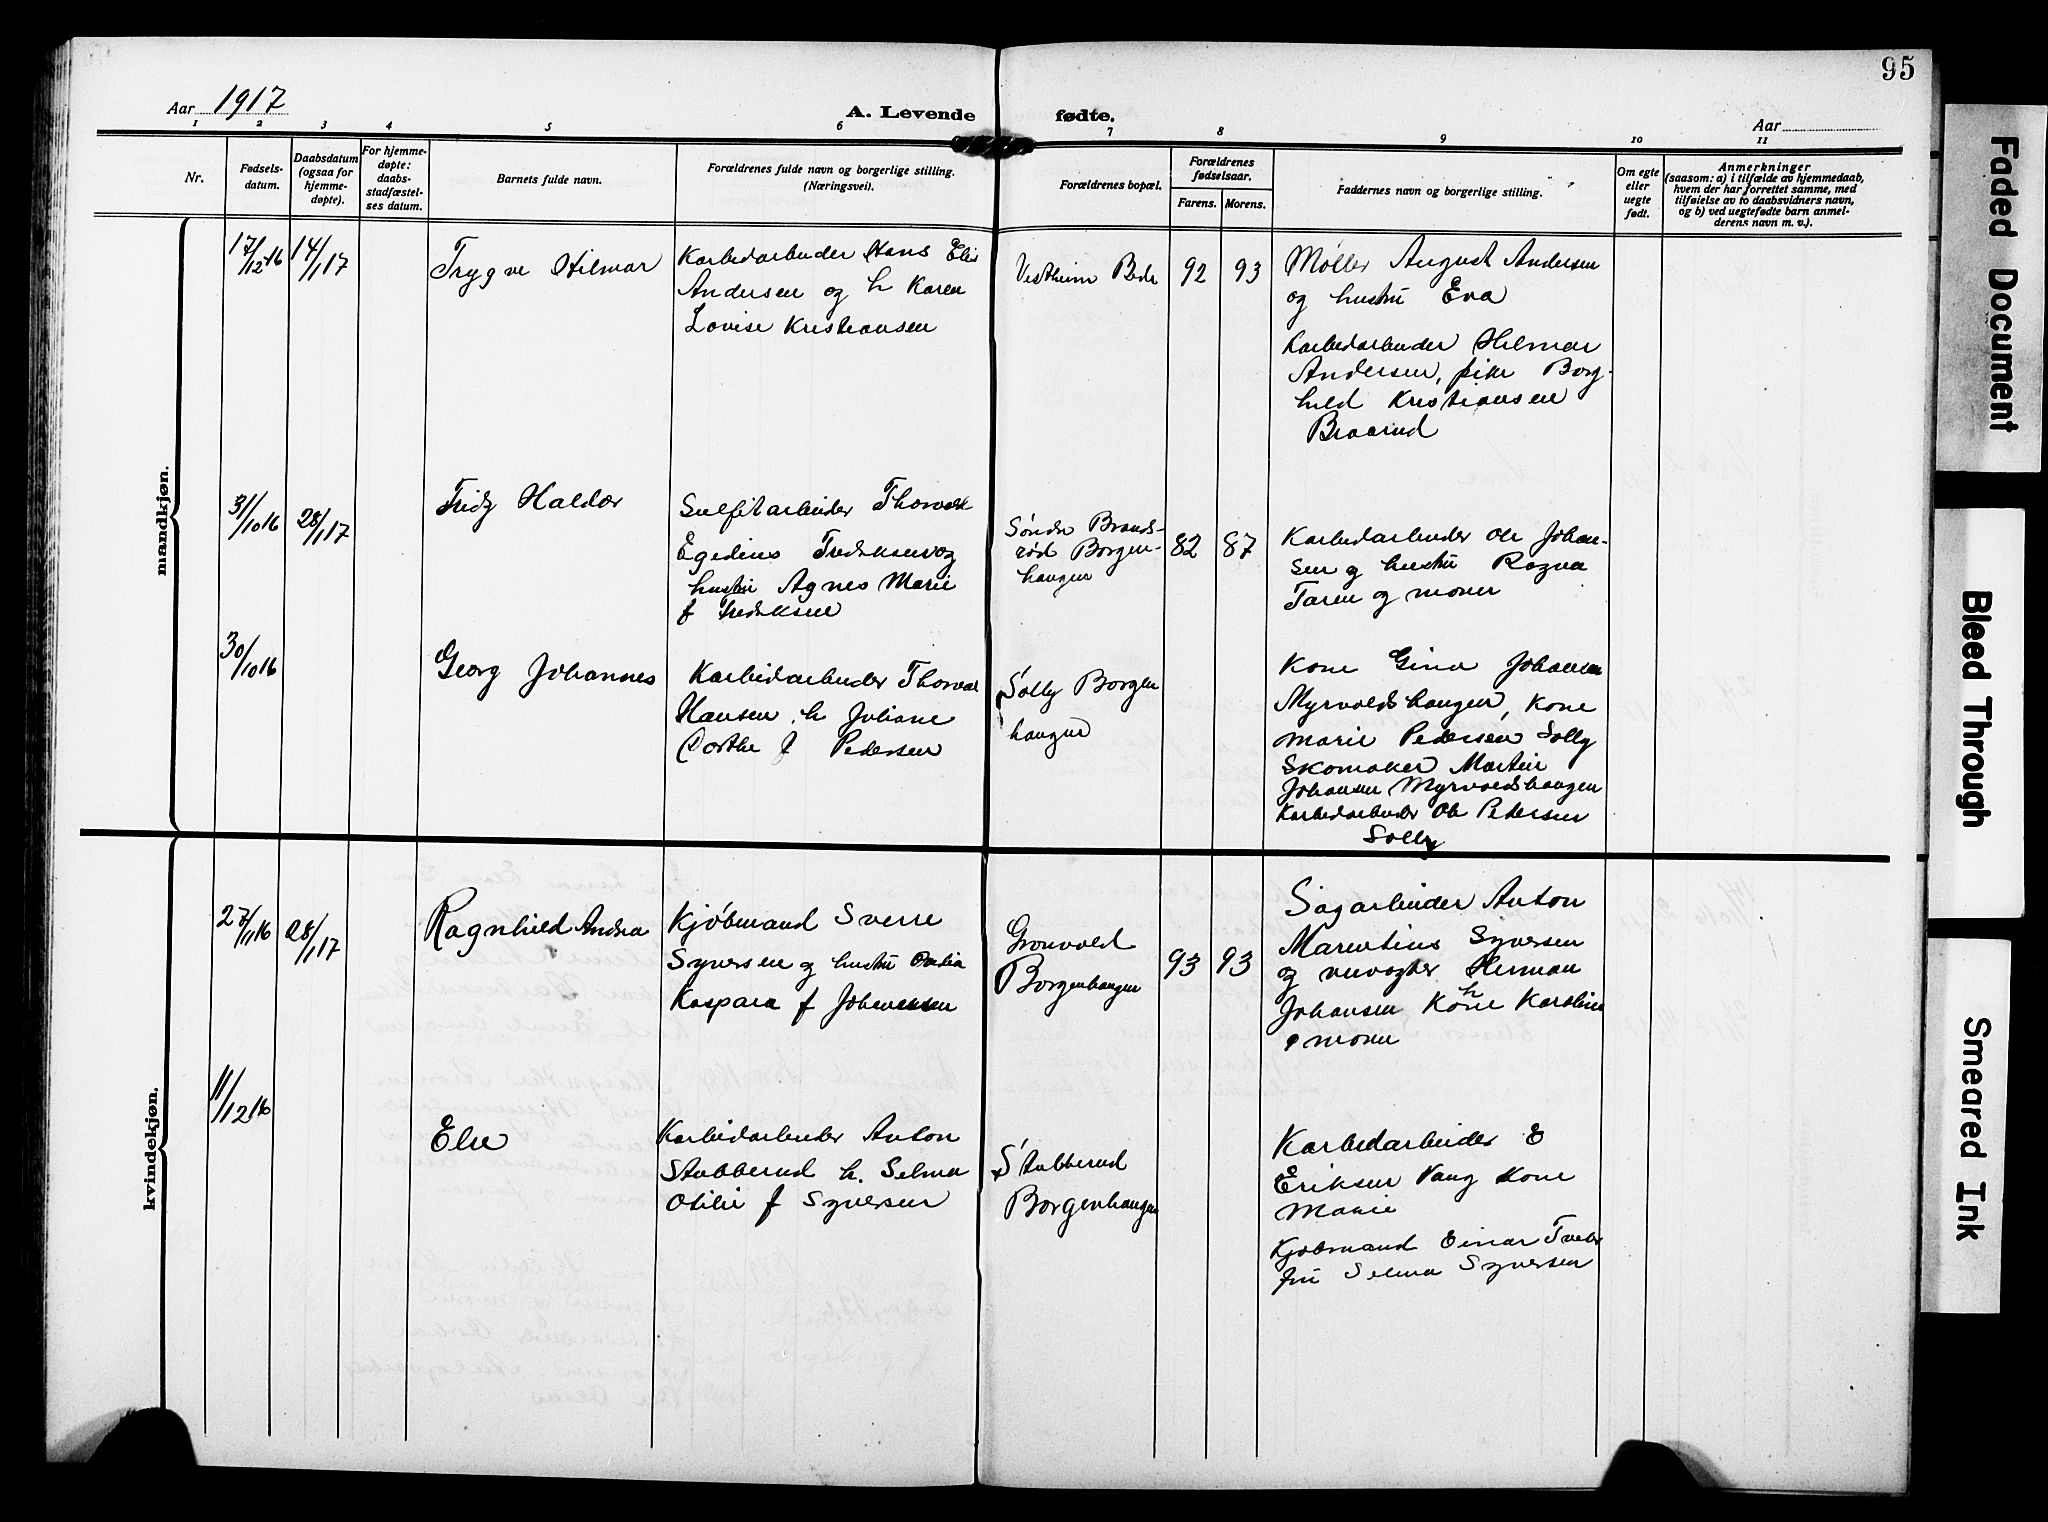 95
Aar 1917
A. Levende fødte.
Aar
1 2 3 4 5 6 7 8 9 10 11
Nr.
Fødsels-
datum.
Daabsdatum
(ogsaa for
hjemme-
døpte).
For hjemme-
døpte:
daabs-
stadfæstel-
ses datum.
Barnets fulde navn.
Forældrenes fulde navn og borgerlige stilling.
(Næringsvei).
Forældrenes bopæl.
Forældrenes
fødselsaar.
Farens. Morens.
Faddernes navn og borgerlige stilling.
Om egte
eller
uegte
født.
Anmerkninger
(saasom: a) i tilfælde av hjemmedaab,
hvem der har forrettet samme, med
tilføielse av to daabsvidners navn,
og b) ved uegtefødte barn anmel-
derens navn m. v.).
mandkjøn.
17/12 16
14/1 17
Trygve Hilmar
Karbedarbeider Hans
Andersen og h Karen
Lovise Kristiansen
Vestheim
92 93
Møller August Andersen
og hustru Eva
Karbedarbeider Hilmar
Andersen, pike Borg-
hild Kristiansen
Braarud
31/10 16
28/1 17
Fridz Haldor
Sulfitarbeider Thorvald
Egedius Fredriksen og
hustru Agnes Marie
f Fredriksen
Søndre Brands-
rød Borgen-
haugen
82 87
Karbedarbeider Ole Johan-
sen og hustru Ragna
Faren og moren
30/10 16
Georg Johannes
Karbedarbeider Thorval
Hansen h Juliane
Dorthe f Pedersen
Solly Borgen
haugen
Kone Gina Johansen
Myrvoldshaugen, Kone
Marie Pedersen Solly
Skomaker Martin
Johansen Myrvoldshaugen
Karbedarbeider Ole Pedersen
Solly
kvindekjøn.
27/11 16
28/1 17
Ragnhild Andrea
Kjøbmand Sverre
Syversen og hustru
Kaspara f Johannessen
Gronvold
Borgenhaugen
93 93
Sagarbeider Anton
Marentius Syversen
og Herman
Johansen Kone h Karoline
og moren
11/12 16
Else
Karbedarbeider Anton
Stubberud h. Selma
Otilie f Syversen
Stubberud
Borgenhaugen
Karbedarbeider E
Eriksen Vang Kone
Marie
Kjøbmand Einar Tveter
fru Selma Syversen
Faded Document
Bleed Through
Smeared Ink